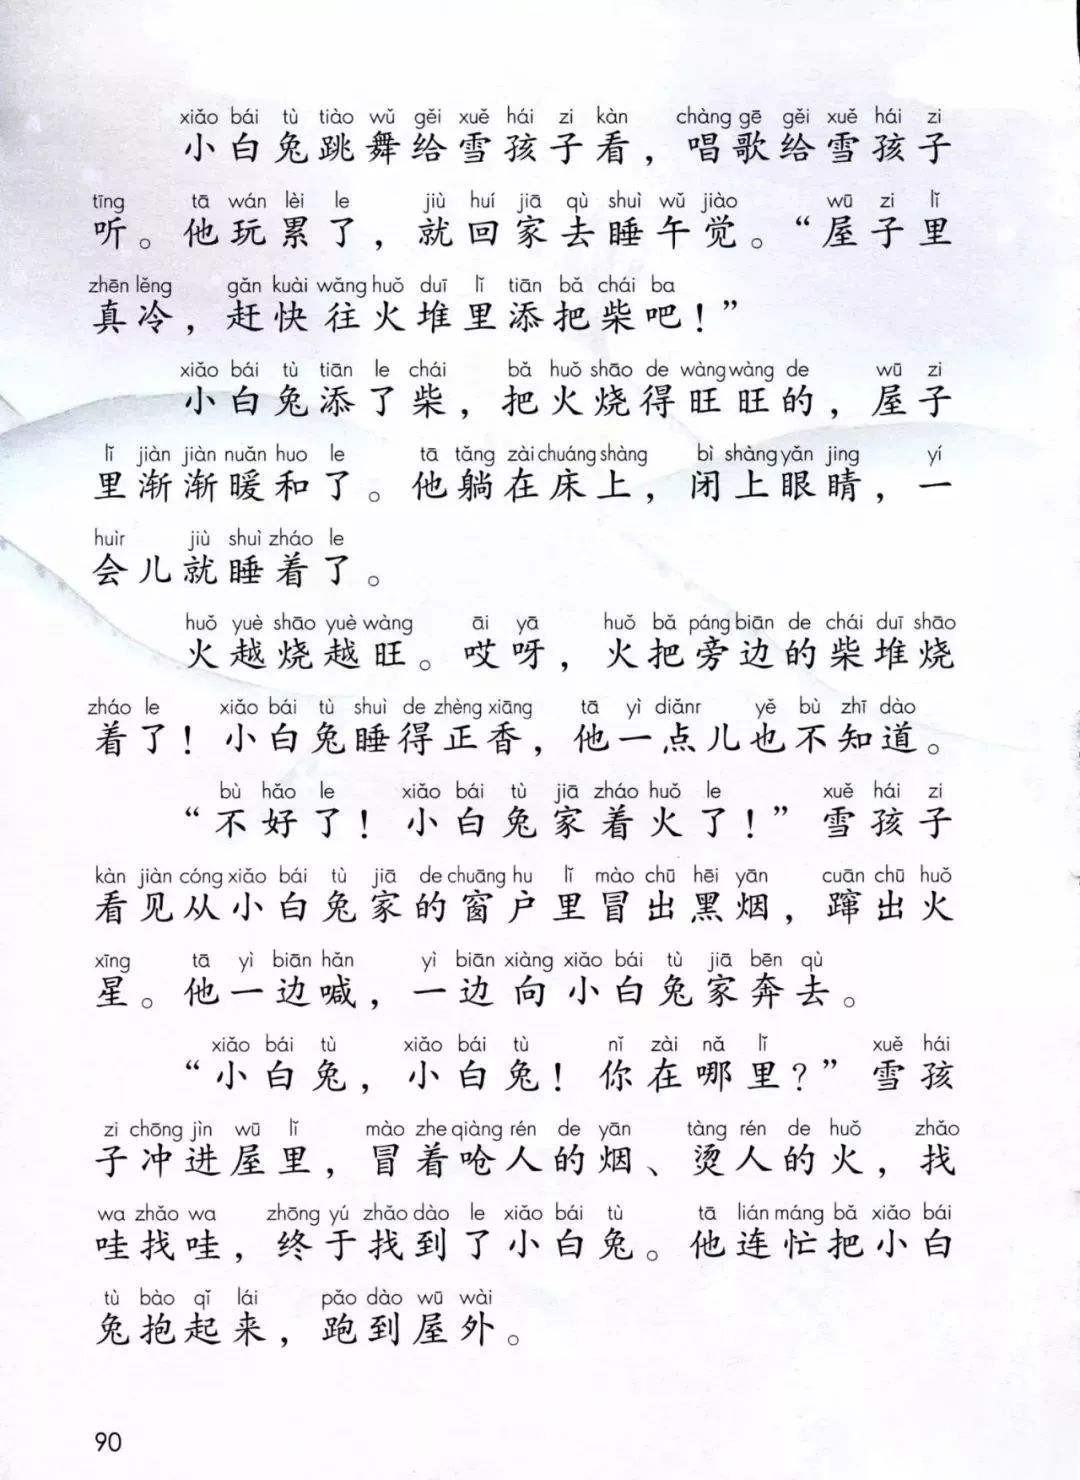 xiǎo bái tù tiào wǔ gěi xuě hái zi kàn chàng gē gěi xuě hái zi
小白兔跳舞给雪孩子看，唱歌给雪孩子
tīng tā wán lèi le jiù huí jiā qù shuì wǔ jiào wū zi lǐ
听。他玩累了，就回家去睡午觉。“屋子里
zhēn lěng gǎn kuài wǎng huǒ duī lǐ tiān bǎ chái ba
真冷，赶快往火堆里添把柴吧！”
xiǎo bái tù tiān le chái bǎ huǒ shāo de wàng wàng de wū zi
小白兔添了柴，把火烧得旺旺的，屋子
lǐ jiàn jiàn nuǎn huo le tā tǎng zài chuáng shàng bì shàng yǎn jing yí
里渐渐暖和了。他躺在床上，闭上眼睛，一
huìr jiù shuì zháo le
会儿就睡着了。
huǒ yuè shāo yuè wàng āi yā huǒ bǎ páng biān de chái duī shāo
火越烧越旺。哎呀，火把旁边的柴堆烧
zháo le xiǎo bái tù shuì de zhèng xiāng tā yì diǎnr yě bù zhī dào
着了！小白兔睡得正香，他一点儿也不知道。
bù hǎo le xiǎo bái tù jiā zháo huǒ le xuě hái zi
“不好了！小白兔家着火了！”雪孩子
kàn jiàn cóng xiǎo bái tù jiā de chuāng hu lǐ mào chū hēi yān cuān chū huǒ
看见从小白兔家的窗户里冒出黑烟，蹿出火
xīng tā yì biān hǎn yì biān xiàng xiǎo bái tù jiā bēn qù
星。他一边喊，一边向小白兔家奔去。
xiǎo bái tù xiǎo bái tù nǐ zài nǎ lǐ xuě hái
“小白兔，小白兔！你在哪里？”雪孩
zi chōng jìn wū lǐ mào zhe qiàng rén de yān tàng rén de huǒ zhǎo
子冲进屋里，冒着呛人的烟、烫人的火，找
wa zhǎo wa zhōng yú zhǎo dào le xiǎo bái tù tā lián máng bǎ xiǎo bái
哇找哇，终于找到了小白兔。他连忙把小白
tù bào qǐ lái pǎo dào wū wài
兔抱起来，跑到屋外。
90